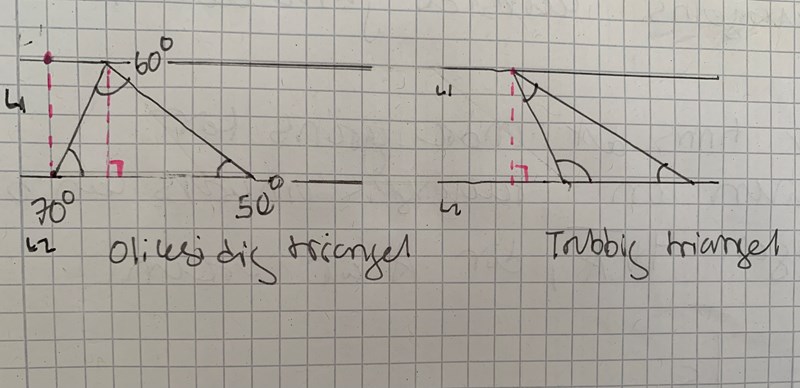 60°
L1
L1
70°
50°
L2
L2
Olikesidig triangel
Trubbig triangel